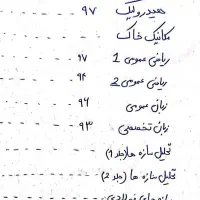 هیدرولیک - - - - ۹۷
مکانیک خاک - - - -
ریاضی عمومی 1 - - - - ۹۷
ریاضی عمومی 2 - - - - ۹۴
زبان عمومی - - - - ۹۶
زبان تخصصی - - - - ۹۳
تحلیل سازه ها (جلد 1) - - - -
تحلیل سازه ها (جلد 2) - - - -
سازه های فولادی - - - -